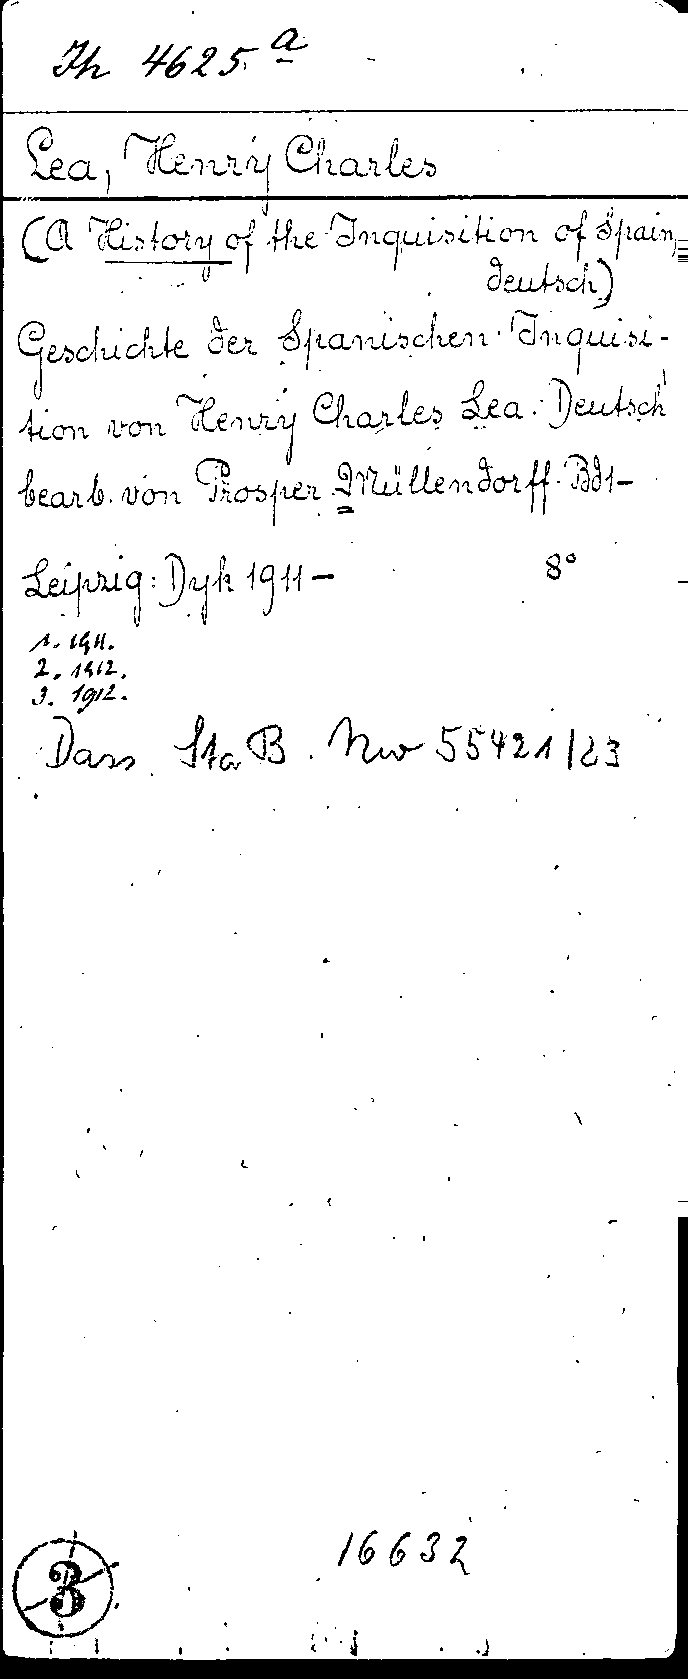 Th 4625.a
Lea, Henry Charles
(A History of the Inquisition of Spain,
deutsch)
Geschichte der Spanischen Inquisi-
tion von Henry Charles Lea. Deutsch
bearb. von Prosper Müllendorff. Bd 1-
Leipzig: Dyk 1911- 8°
1. 1911.
2. 1912.
3. 1912.
Dass StaB. Nw 55421/23
16632
3